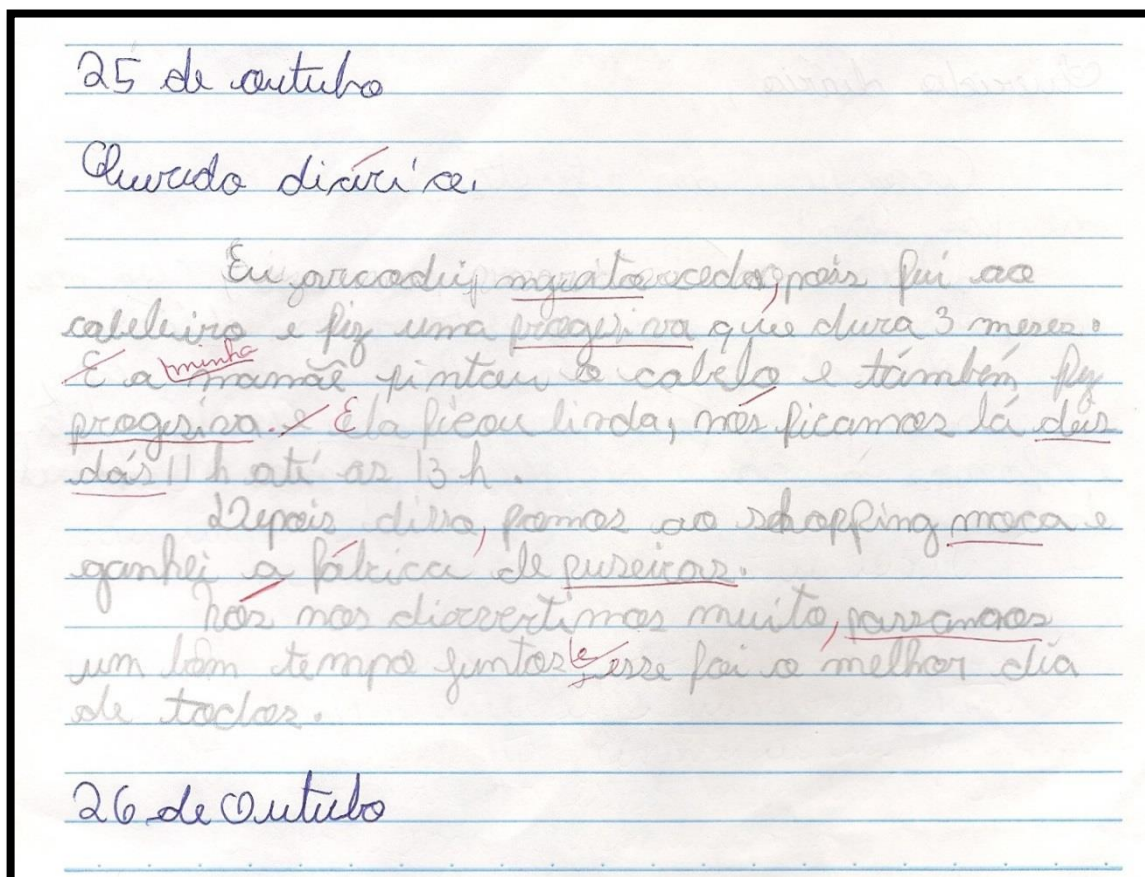 25 de outubo
Querido diário.
Eu acordei muito cedo, pois fui ao
cabeleiro e fiz uma progesiva que dura 3 meses.
E a minha mamãe pintou o cabelo e também fiz
progesiva. E Ela ficou linda, nós ficamos lá das
dás 11 h até as 13 h.
Depois disso, fomos ao shopping moca e
ganhei a fábrica de puseiras.
Nós nos divertimos muito, passamos
um bom tempo juntos e esse foi o melhor dia
de todos.
26 de Outubo